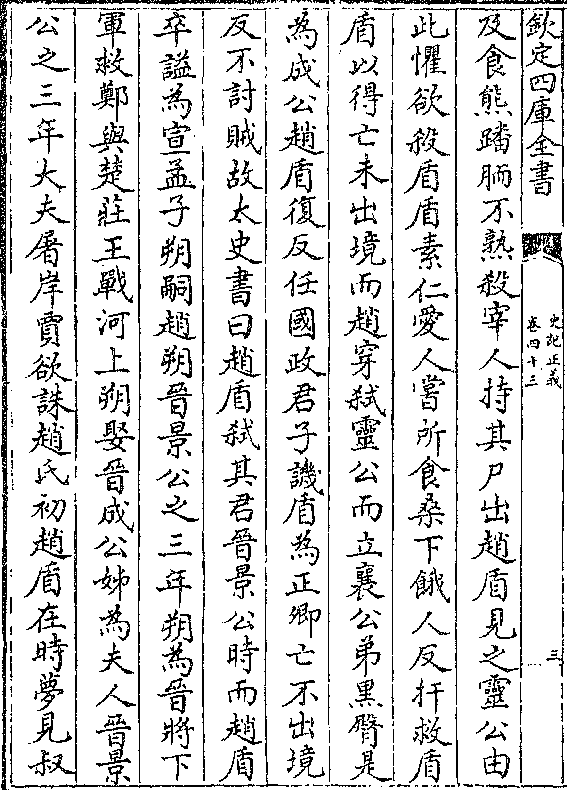 欽定四庫全書
史記正義
卷四十三
三
及食熊蹯胹不熟殺宰人持其尸出趙盾見之靈公由
此懼欲殺盾盾素仁愛人嘗所食桑下餓人反扞救盾
盾以得亡未出境而趙穿弑靈公而立襄公弟黑臀是
為成公趙盾復反任國政君子譏盾為正卿亡不出境
反不討賊故太史書曰趙盾弑其君晉景公時而趙盾
卒謚為宣孟子朔嗣趙朔晉景公之三年朔為晉將下
軍救鄭與楚莊王戰河上朔娶晉成公姊為夫人晉景
公之三年大夫屠岸賈欲誅趙氏初趙盾在時夢見叔